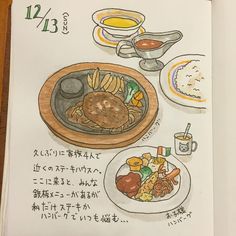 12/13 (SUN)
ハンバーグ
久しぶりに家族4人で
近くのステーキハウスへ。
ここに来ると、みんな
鉄板メニューがあるが
私だけステーキか
ハンバーグでいつも悩む…
お子様
ハンバーグ